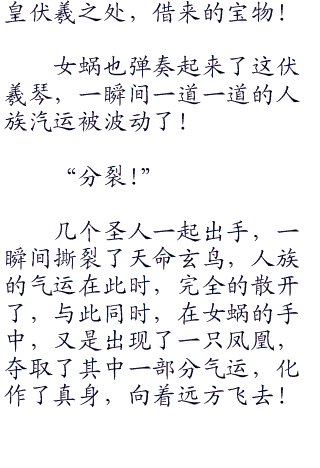 皇伏羲之处，借来的宝物！
女蜗也弹奏起来了这伏
羲琴，一瞬间一道一道的人
族汽运被波动了！
“分裂！”
几个圣人一起出手，一
瞬间撕裂了天命玄鸟，人族
的气运在此时，完全的散开
了，与此同时，在女蜗的手
中，又是出现了一只凤凰，
夺取了其中一部分气运，化
作了真身，向着远方飞去！